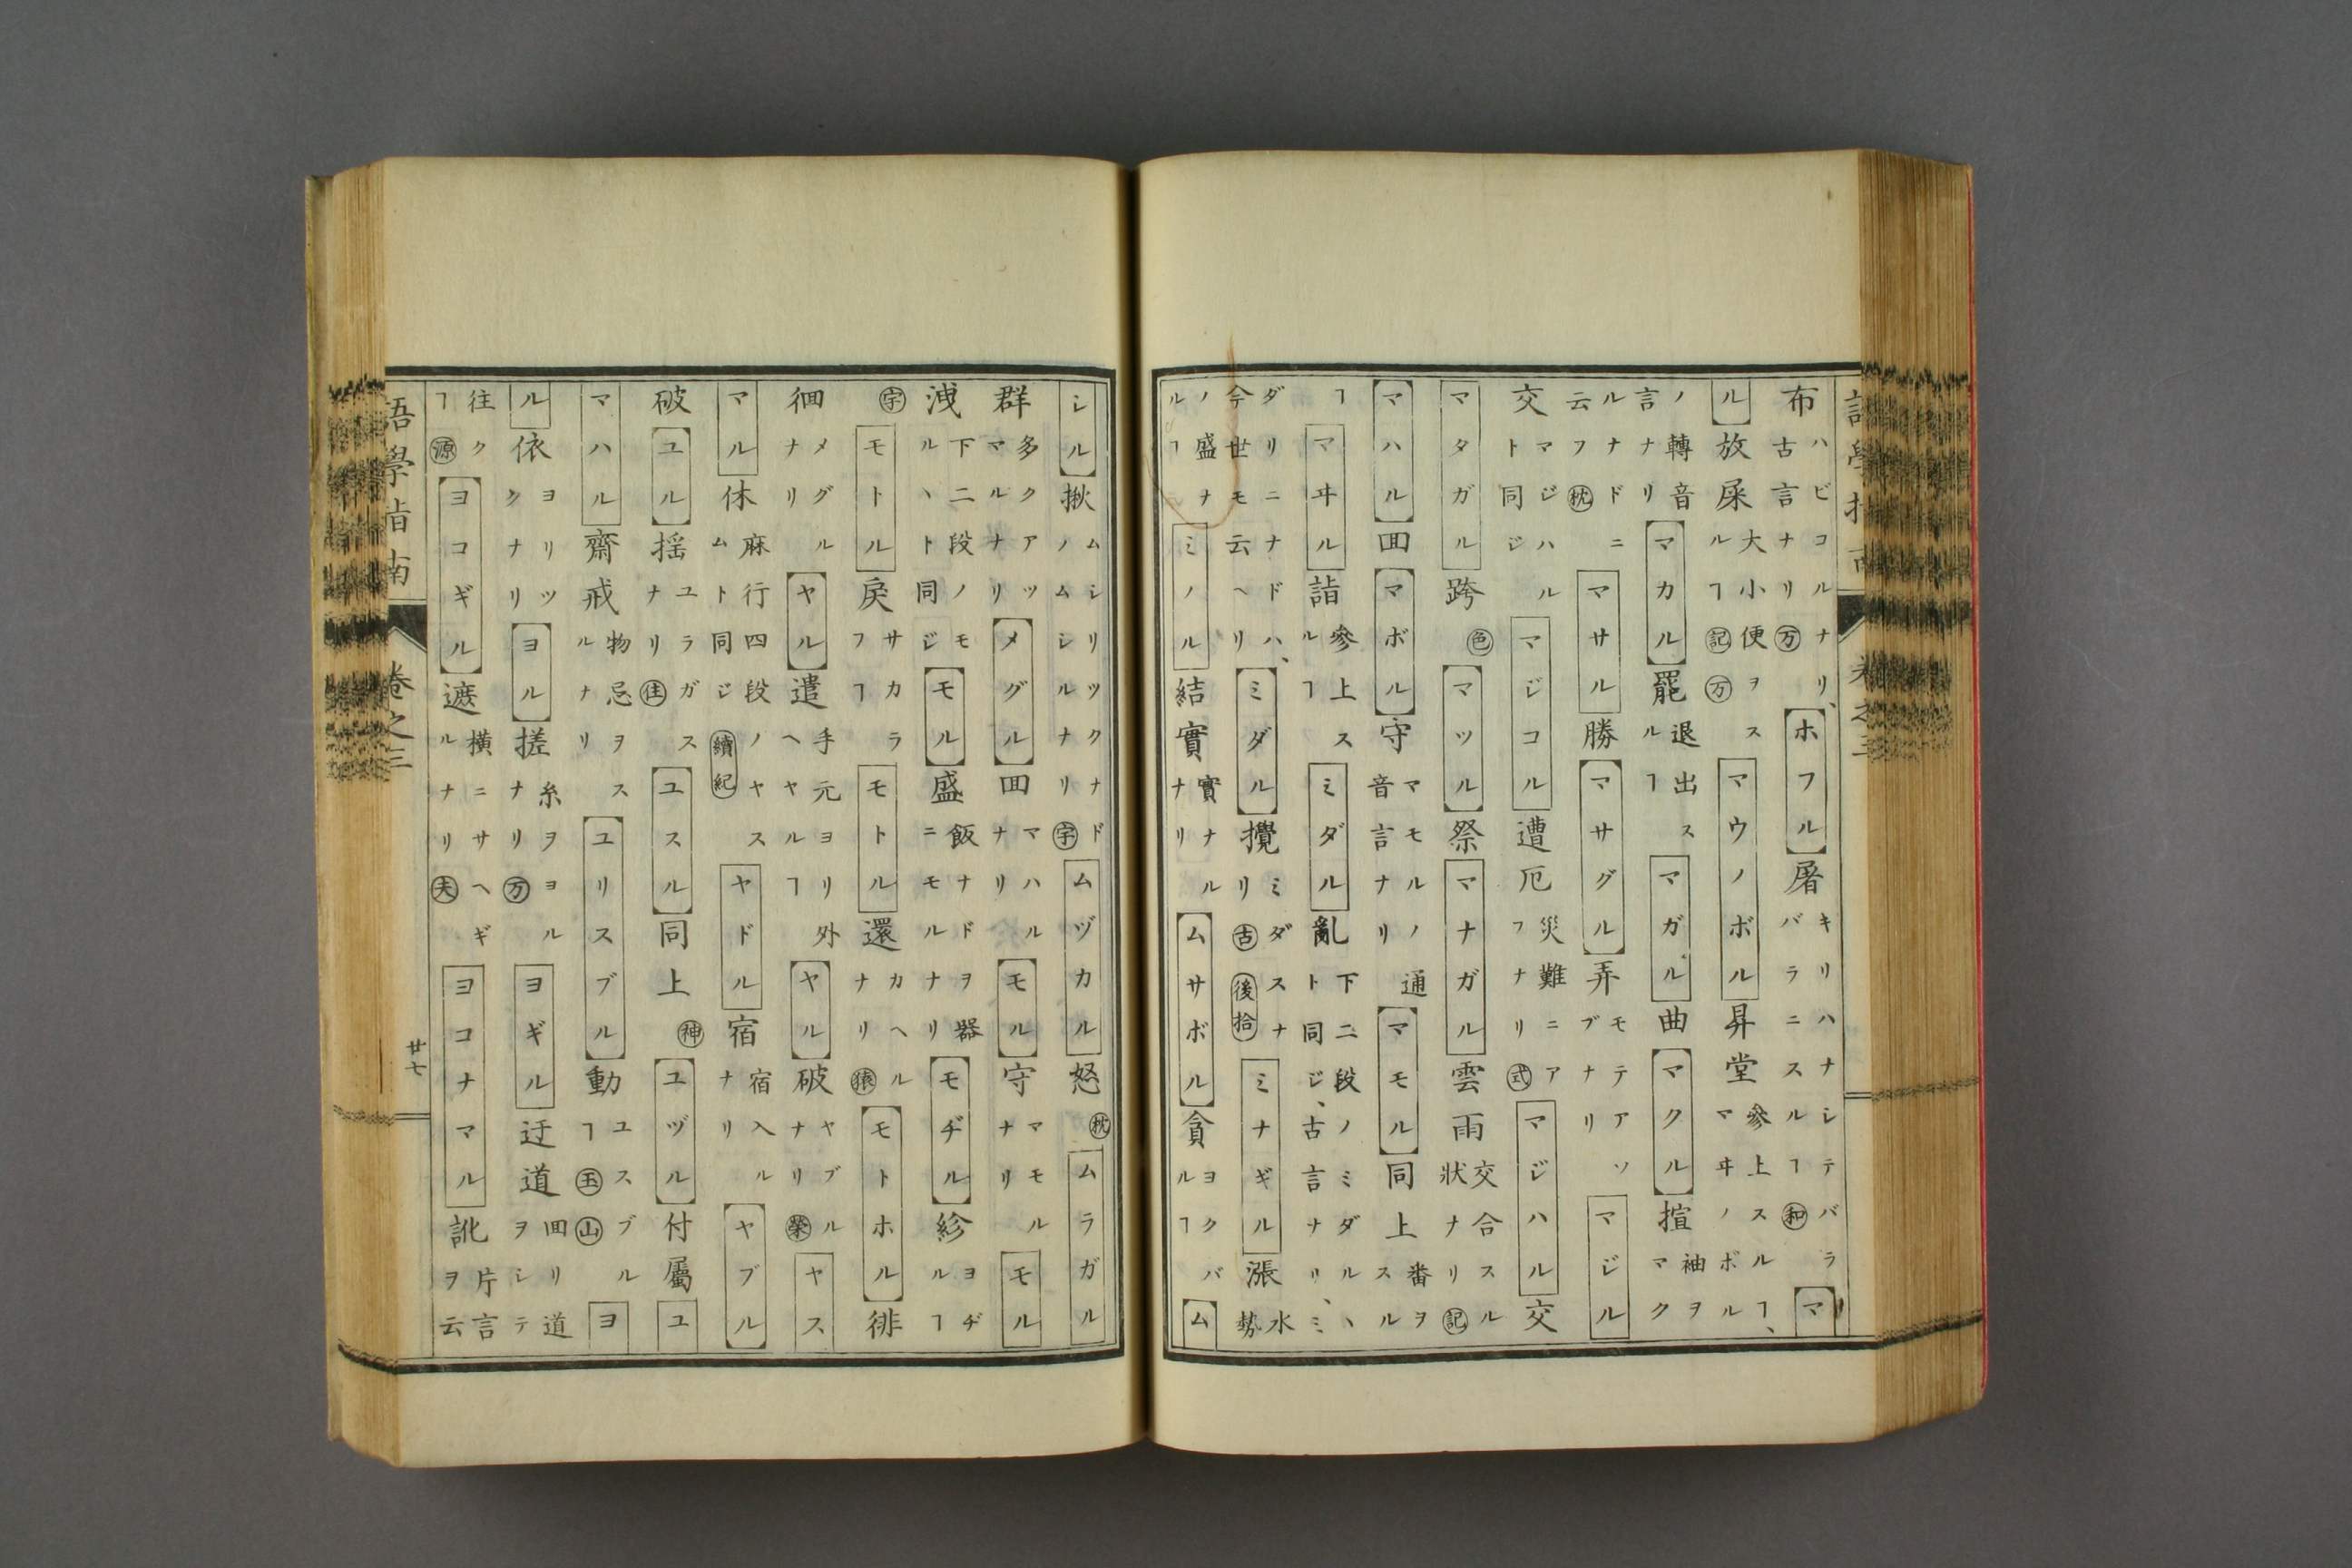 布ハビコルナリ、古言ナリ万ホフル屠キリハナシテバラバラニスルヿ和マ
ル放屎大小便ヲスルヿ記万マウノボル昇堂參上スルヿ、マヰノボル
ノ轉音言ナリマカル罷退出スルヿマガル曲マクル揎袖ヲマク
ルナドニ云フ枕マサル勝マサグル弄モテアソブナリマジル
交マジハルト同ジマジコル遭厄災難ニアフナリ式マジハル交
マタガル跨色マツル祭マナガル雲雨交合スル狀ナリ記
マハル回マボル守マモルノ通音言ナリマモル同上番ヲスル
ヿマヰル詣參上スルヿミダル亂下二段ノミダルヽト同ジ、古言ナリ、ミ
ダリニナドハ、今世モ云ヘリミダル攪ミダスナリ古後拾ミナギル漲水勢
ノ盛ナルヿミノル結實實ナルナリムサボル貪ヨクバルヿム
シル揪ムシリツクナドノムシルナリ宇ムヅカル怒枕ムラガル
群多クアツマルナリメグル回マハルナリモル守マモルナリモル
洩下二段ノモルヽト同ジモル盛飯ナドヲ器ニモルナリモヂル紾ヨヂルヿ
宇モトル戾サカラフヿモトル還カヘルナリ猿モトホル徘
徊メグルナリヤル遣手元ヨリ外ヘヤルヿヤル破ヤブルナリ榮ヤス
マル休麻行四段ノヤスムト同ジ續紀ヤドル宿宿入ルナリヤブル
破ユル搖ユラガスナリ住ユスル同上神ユヅル付屬ユ
マハル齋戒物忌ヲスルナリユリスブル動ユスブルヿ玉山ヨ
ル依ヨリツクナリヨル搓糸ヲヨルナリ万ヨギル迂道回リ道ヲシテ
往クヿ源ヨコギル遮横ニサヘギルナリ夫ヨコナマル訛片言ヲ云
語學指南 卷之三 廿七